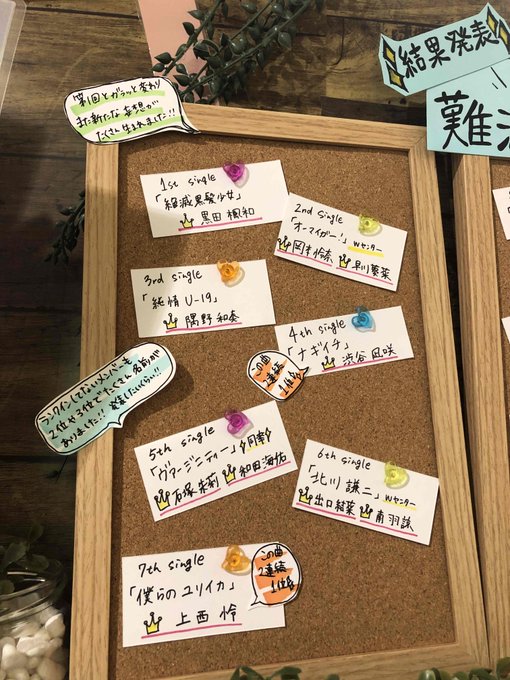 結果発表
難
第1回とガラッと変わり
また新たな妄想が
たくさん生まれました!!
1st single
「絶滅黒髪少女」
黒田楓和
2nd single
「オーマイガー!」Wセンター
岡本怜奈 早川夢菜
3rd single
「純情U-19」
隅野和奏
4th single
「ナギイチ」
渋谷凪咲
この曲
2連続
1位
ランクインしてないメンバーも
2位や3位でたくさん名前が
ありました!!
5th single
「ヴァージニティー」同率
石塚朱莉 和田海佑
6th single
「北川謙二」Wセンター
出口結菜 南羽諒
7th single
「僕らのユリイカ」
上西怜
この曲
2連続
1位